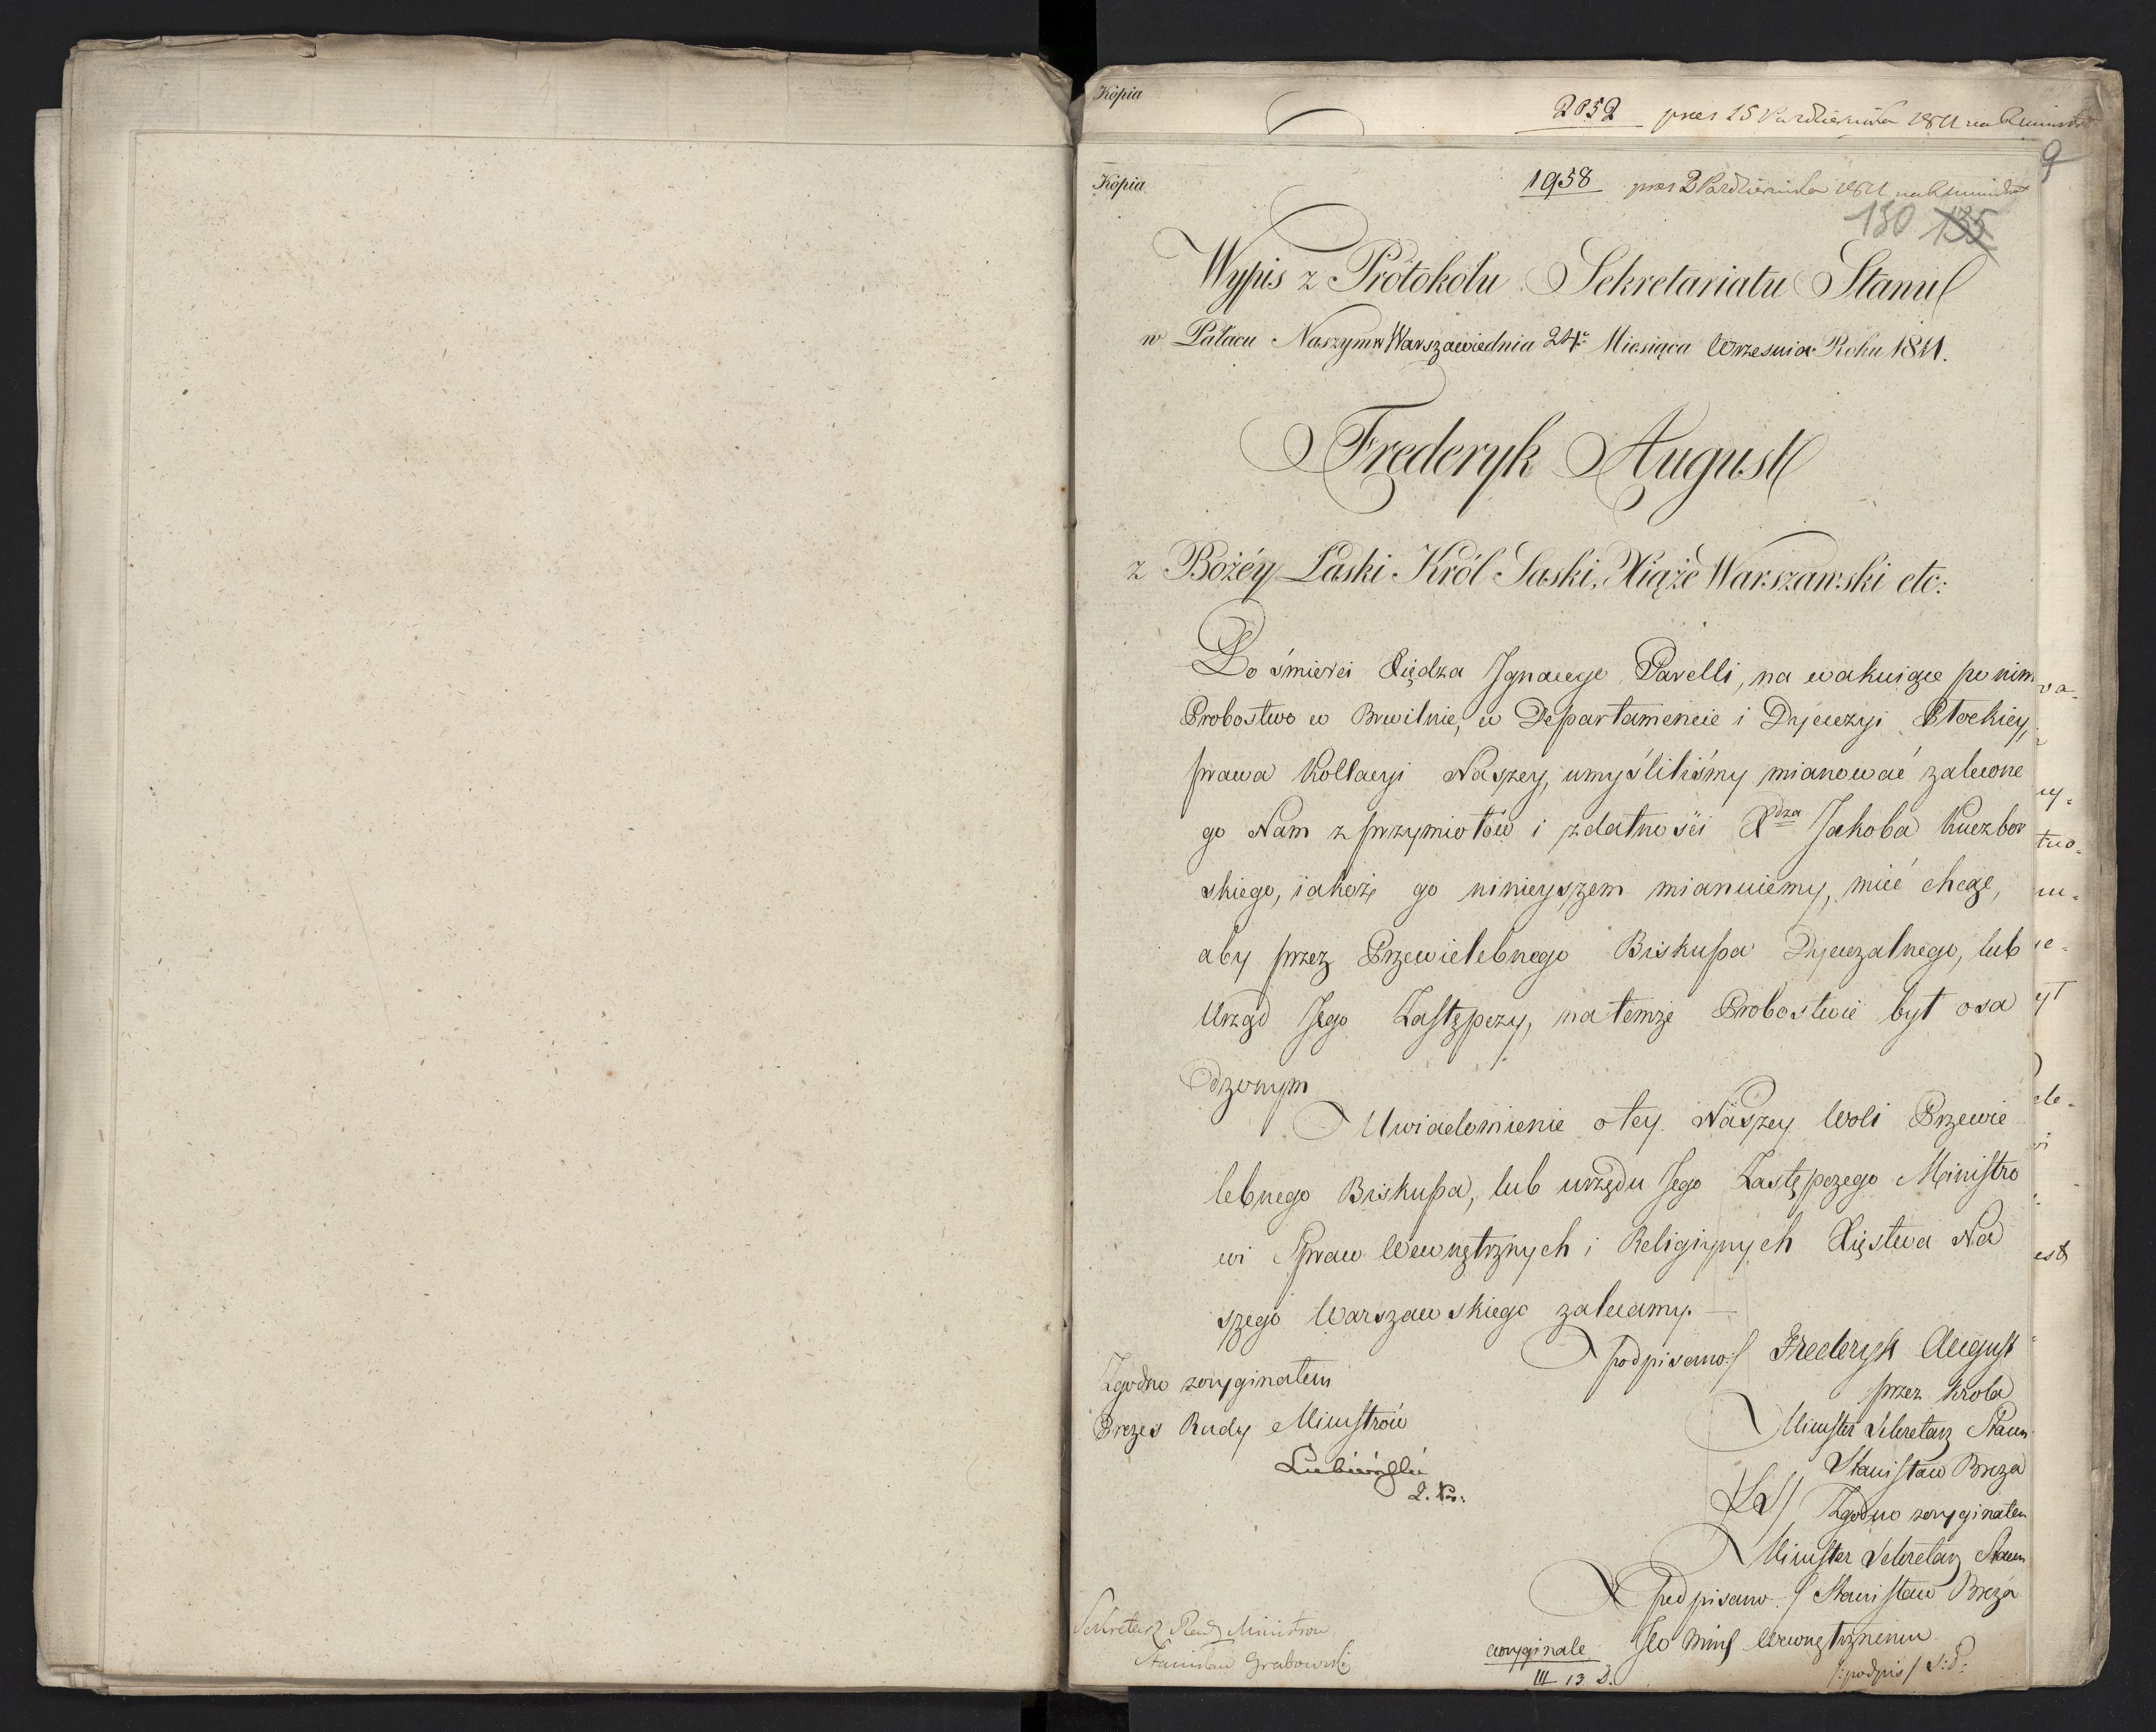 Kopia
2052 prez 15 Października 1811 na R
Kopia
1958 prez 2 Października 1811 na R
9
130 135
Wypis z Protokołu Sekretariatu Stanu
w Pałacu Naszym w Warszawie dnia 24. Miesiąca Wrzesnia Roku 1811.
Frederyk August
z Bożéy Łaski Król Saski, Xiąże Warszawski etc:
Po śmierci Xiędza Jgnacego Parelli, na wakuiące po nim
Probostwo w Brwilnie, w Departamencie i Dyecezyi Płockiey,
prawa Kollacyi Naszey, umyśliliśmy mianować zalecone
go Nam z przymiotów i zdatności Xdza Jakoba Kuczbor
skiego, iakoż go ninieyszem mianuiemy, mieć chcąc,
aby przez Przewielebnego Biskupa Dyecezalnego, lub
Urząd Jego Zastępczy, na temże Probostwie był osa
dzonym
Uwiadomienie o tey Naszey Woli Przewie
lebnego Biskupa, lub urzędu Jego Zastępczego Ministro
wi Spraw Wewnętrznych i Religiynych Xięstwa Na
szego Warszawskiego zalecamy. —
podpisano:/ Frederyk August
przez Krola
Minister Sekretarz Stanu
Stanisław Breza
/LS/ Zgodno z oryginałem
Minister Sekretarz Stanu
podpisano:/ Stanisław Breza
Zgodno z oryginałem
Prezes Rady Ministrów
Lubieński
Z. Pr:
Sekretarz Rady Ministrow
Stanisław Grabowski
w oryginale Do Mins Wewnętrznemu
III 13 D. /:podpis/ S:P:
va-
cy-
tno-
m-
ie-
yt
ele-
wi
est